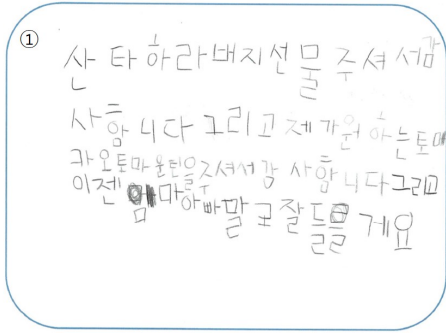 ①
산타하라버지선물주셔서감
사함니다그리고제가원하는토마
카오토마운틴을주셔서감사함니다그리고
이젠엄마아빠말로잘들을게요